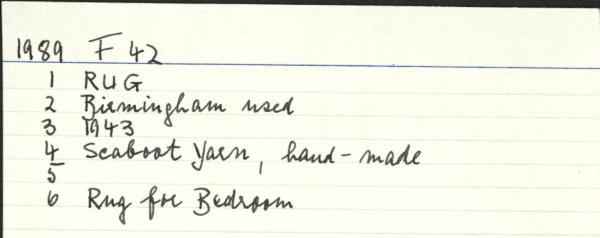 1989 F 42
1 RUG
2 Birmingham used
3 1943
4 Seaboot Yarn, hand-made
5
6 Rug for Bedroom